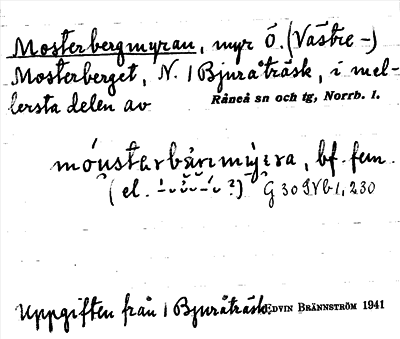 Mosterbergmyran, myr ö. (Västre -)
Mosterberget, N. / Bjuråträsk, i mel-
lersta delen av
Råneå sn och tg, Norrb. l.
bf. fem.
(el. ?) G 30
Uppgiften från / Bjuråträsk.
EDVIN BRÄNNSTRÖM 1941